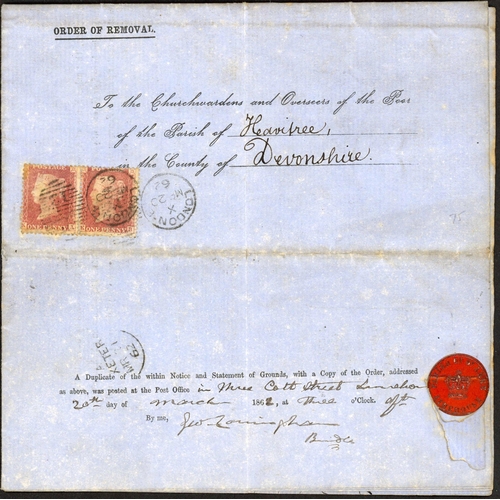 ORDER OF REMOVAL.
To the Churchwardens and Overseers of the Poor
of the Parish of Heavitree,
in the County of Devonshire.
ONE PENNY
ONE PENNY
LONDON
X
MR 20
62
EXETER
62
A Duplicate of the within Notice and Statement of Grounds, with a Copy of the Order, addressed
as above, was posted at the Post Office in Street London
20th day of March 1862, at three o'Clock.
By me,